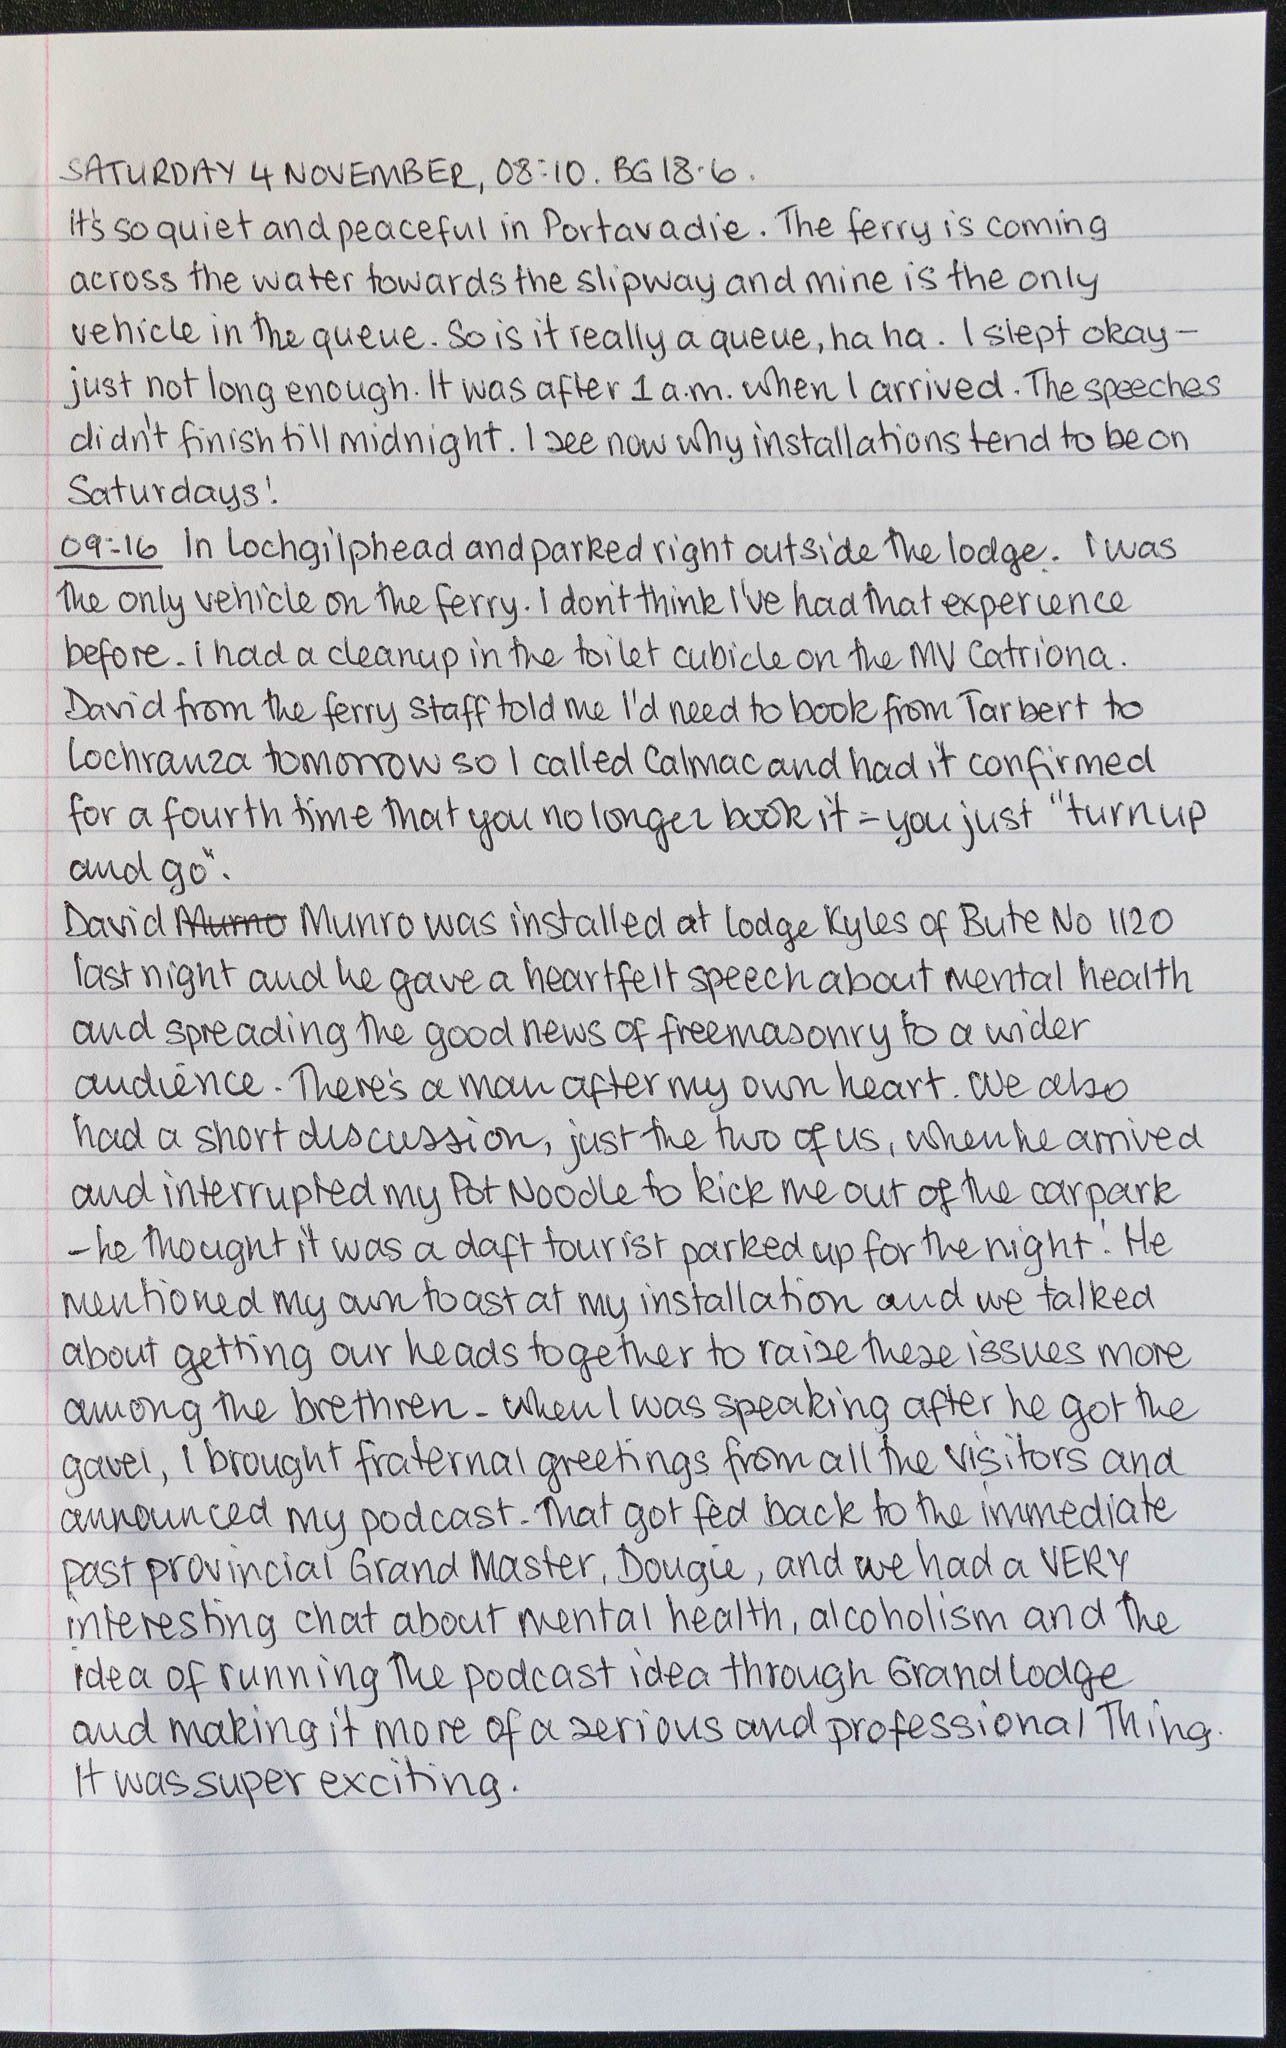 SATURDAY 4 NOVEMBER, 08:10. BG 18.6.
It's so quiet and peaceful in Portavadie. The ferry is coming
across the water towards the slipway and mine is the only
vehicle in the queue. So is it really a queue, ha ha. I slept okay –
just not long enough. It was after 1 a.m. when I arrived. The speeches
didn't finish till midnight. I see now why installations tend to be on
Saturdays!
09:16 In Lochgilphead and parked right outside the lodge. I was
the only vehicle on the ferry. I don't think I've had that experience
before. I had a cleanup in the toilet cubicle on the MV Catriona.
David from the ferry staff told me I'd need to book from Tarbert to
Lochranza tomorrow so I called Calmac and had it confirmed
for a fourth time that you no longer book it – you just "turn up
and go".
David Murno Munro was installed at Lodge Kyles of Bute No 1120
last night and he gave a heartfelt speech about mental health
and spreading the good news of freemasonry to a wider
audience. There's a man after my own heart. We also
had a short discussion, just the two of us, when he arrived
and interrupted my Pot Noodle to kick me out of the carpark
– he thought it was a daft tourist parked up for the night! He
mentioned my own toast at my installation and we talked
about getting our heads together to raise these issues more
among the brethren. When I was speaking after he got the
gavel, I brought fraternal greetings from all the visitors and
announced my podcast. That got fed back to the immediate
past provincial Grand Master, Dougie, and we had a VERY
interesting chat about mental health, alcoholism and the
idea of running the podcast idea through Grand Lodge
and making it more of a serious and professional thing.
It was super exciting.